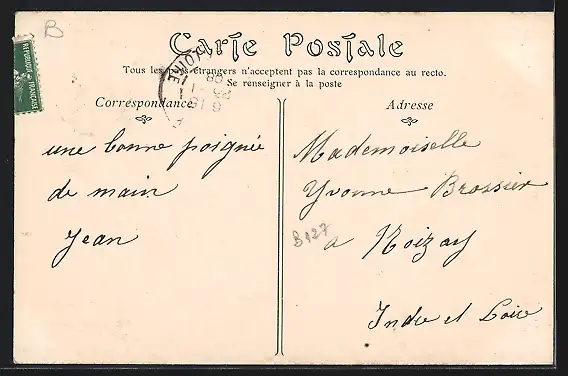 B
Carte Postale
RÉPUBLIQUE FRANÇAISE
Tous les pays étrangers n'acceptent pas la correspondance au recto.
Se renseigner à la poste
LOIRE
Correspondance
Adresse
une bonne poignée
de main
Jean
Mademoiselle
Yvonne Brossier
B127
a Noizay
Indre et Loire